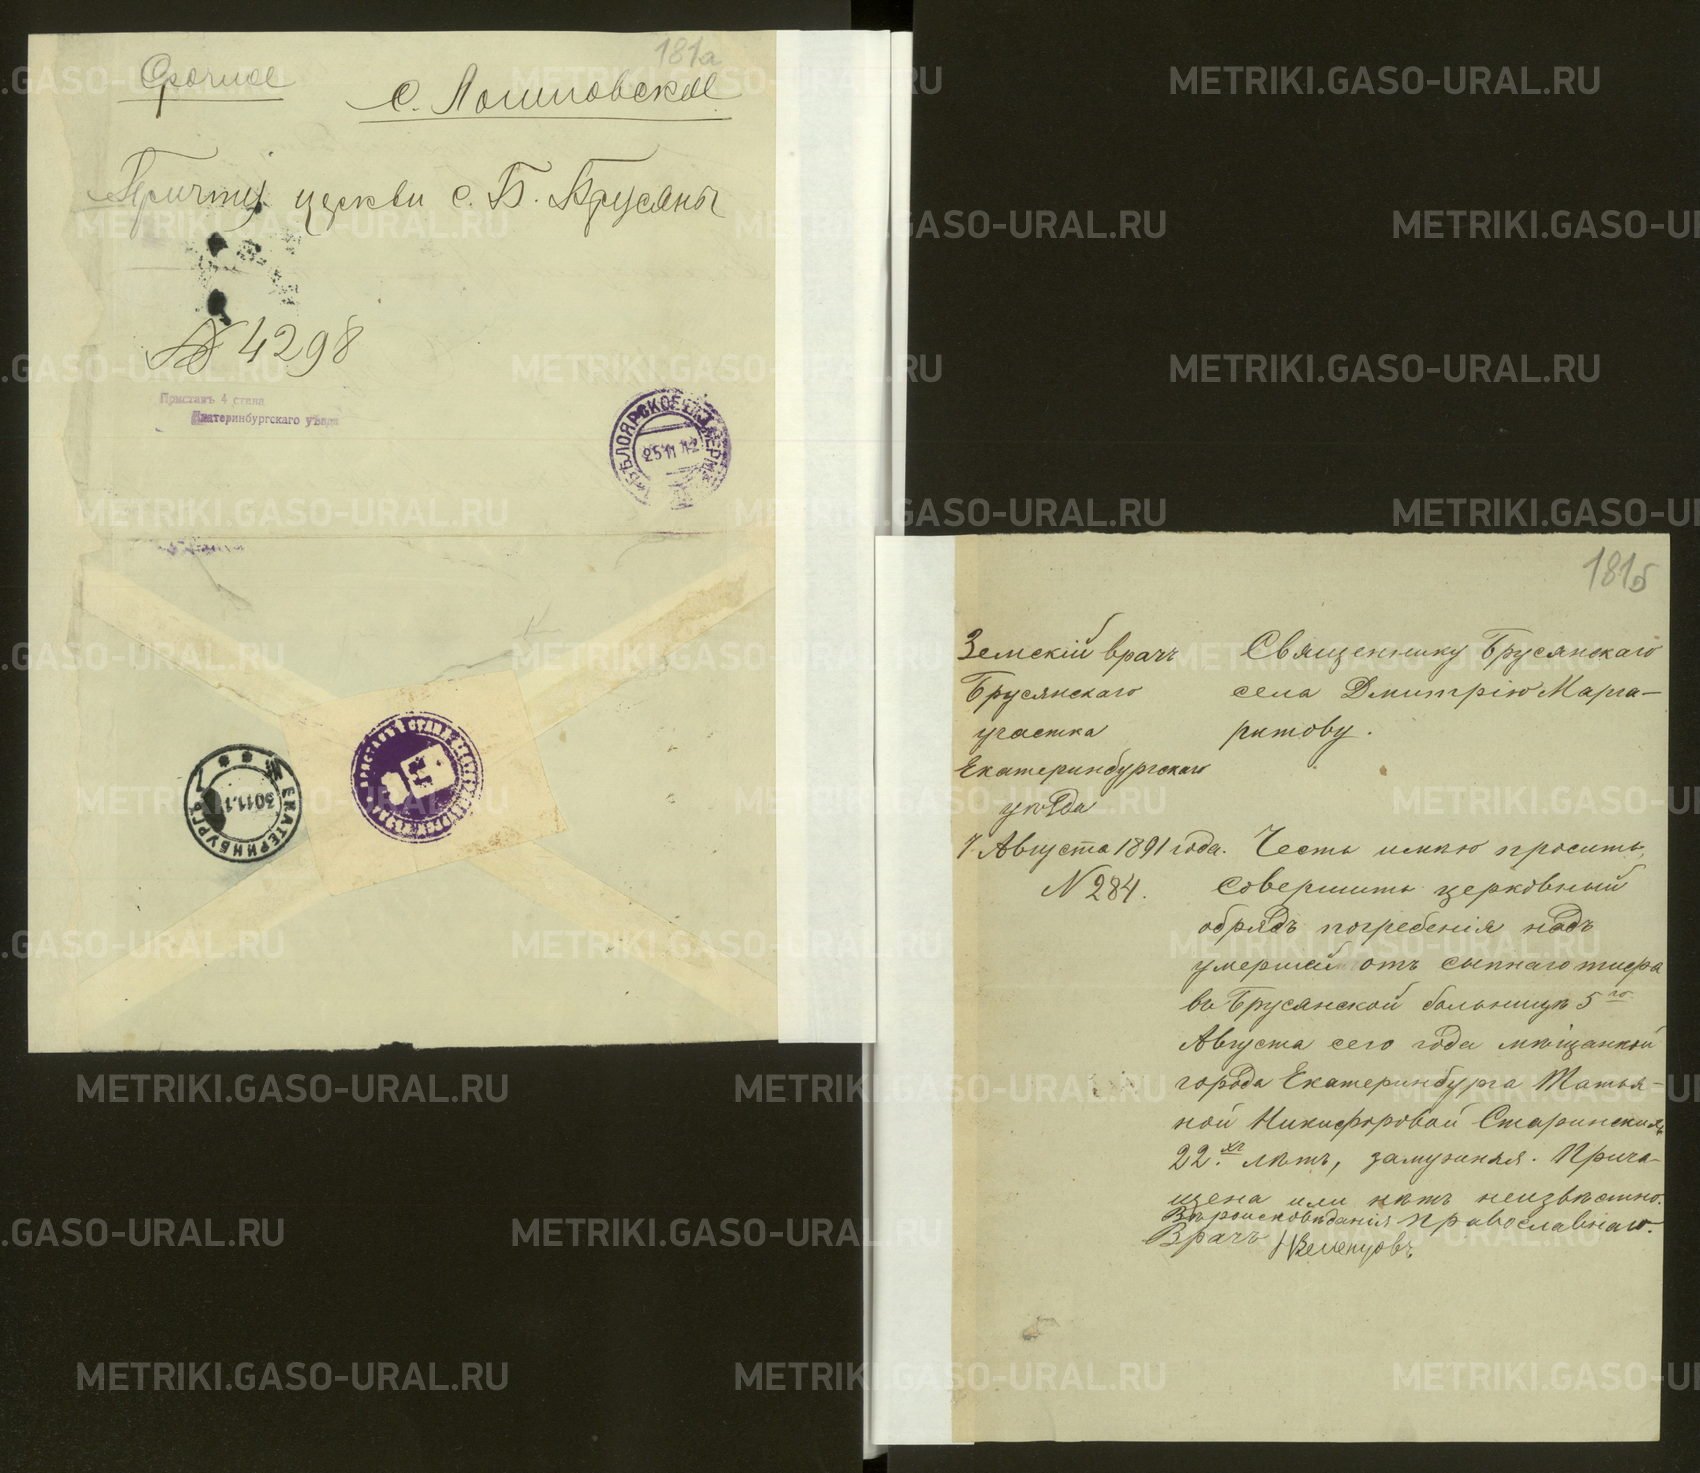 181а
Срочное
с. Логиновское
Причту церкви с. Б. Брусяны
№ 4298
Приставъ 4 стана
Екатеринбургскаго уѣзда
БѢЛОЯРСКОЕ ПЕРМ
25 11 12
ЕКАТЕРИНБУРГЪ
30 11 1
181б
Земскій врачъ
Брусянскаго
участка
Екатеринбургскаго
уѣзда
7 Августа 1891 года.
N 284.
Священнику Брусянскаго
села Дмитрію Марга-
ритову.
Честь имѣю просить
совершить церковный
обрядъ погребенія надъ
умершей отъ сыпнаго тифа
въ Брусянской больницѣ 5го
Августа сего года мѣщанкой
города Екатеринбурга Татья-
ной Никифоровой
22хъ лѣтъ, замужняя. Прича-
щена или нѣтъ неизвѣстно.
Вѣроисповѣданія православнаго.
Врачъ
METRIKI.GASO-URAL.RU